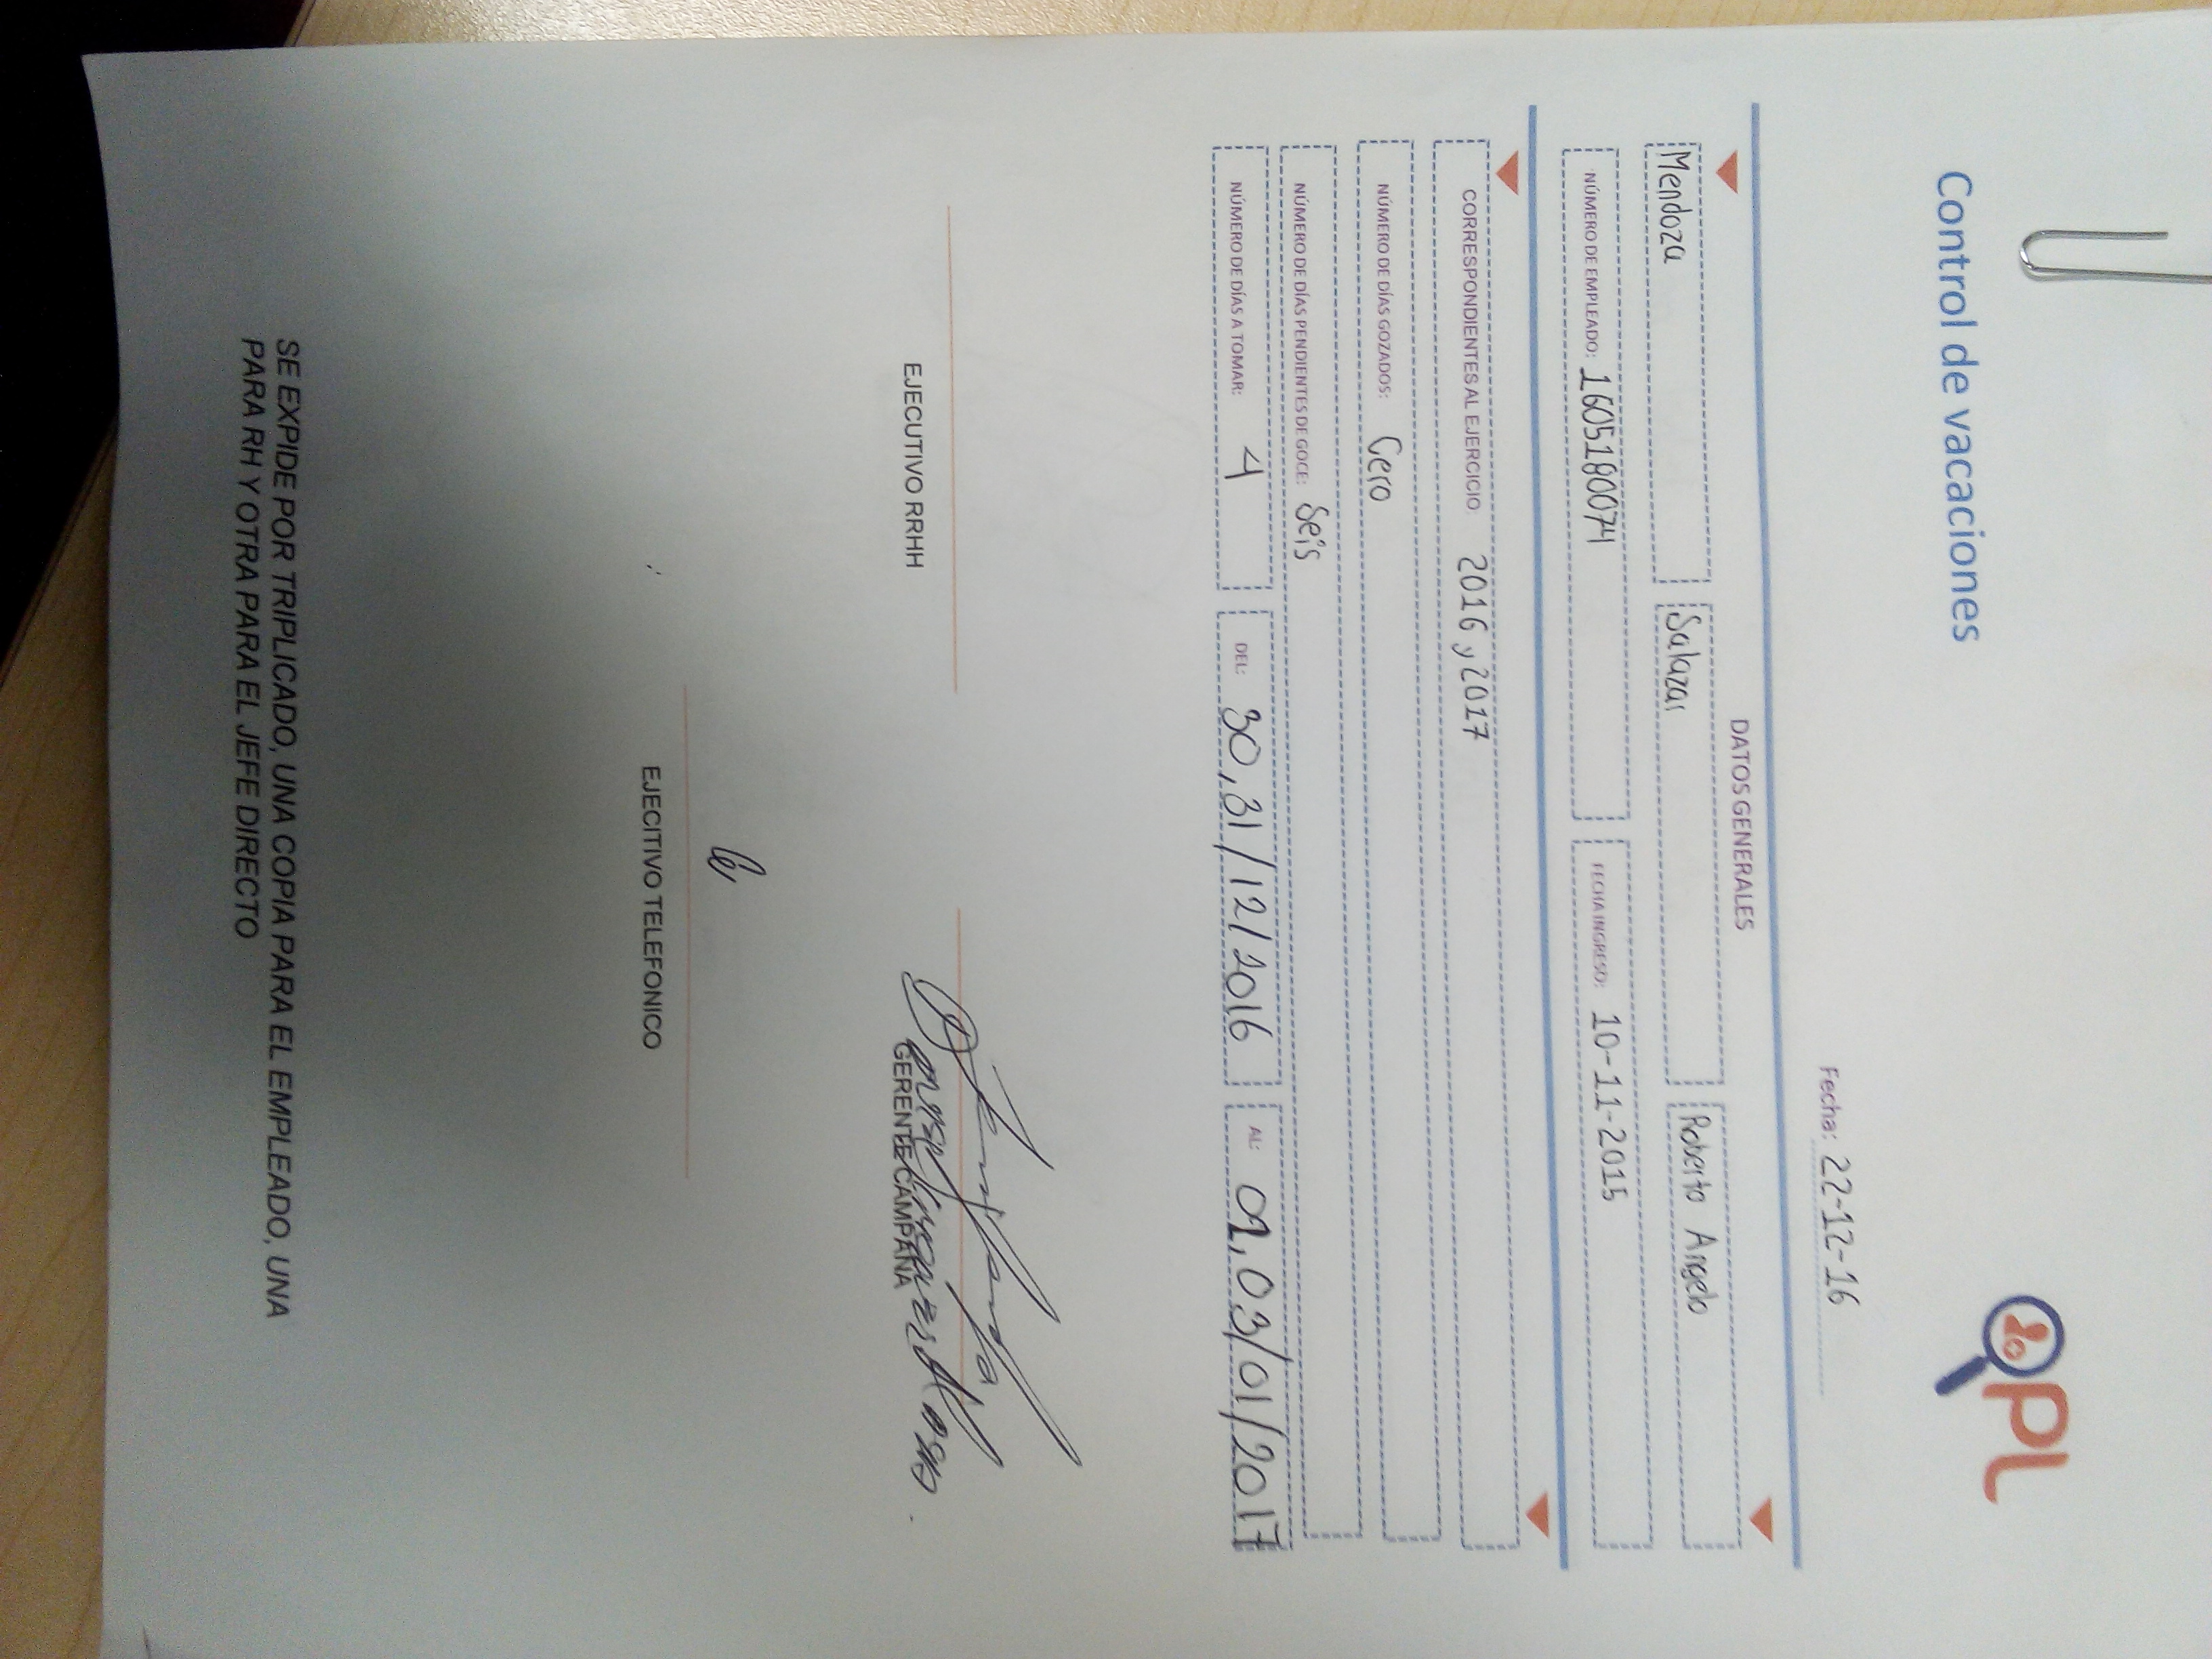 PL
Control de vacaciones
Fecha: 22-12-16
DATOS GENERALES
Mendoza Salazar Roberto Angelo
NÚMERO DE EMPLEADO: 1605180074 FECHA INGRESO: 10-11-2015
CORRESPONDIENTES AL EJERCICIO: 2016 y 2017
NÚMERO DE DÍAS GOZADOS: Cero
NÚMERO DE DÍAS PENDIENTES DE GOCE: Seis
NÚMERO DE DÍAS A TOMAR: 4 DEL: 30,31/12/2016 AL: 02,03/01/2017
EJECUTIVO RRHH GERENTE CAMPAÑA
EJECITIVO TELEFONICO
SE EXPIDE POR TRIPLICADO, UNA COPIA PARA EL EMPLEADO, UNA
PARA RH Y OTRA PARA EL JEFE DIRECTO